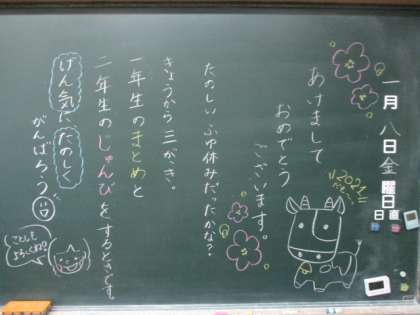 一月八日金曜日
日直
あけまして
おめでとう
ございます。
2021
たのしいふゆ休みだったかな？
きょうから三がっき。
一年生のまとめと
二年生のじゅんびをするときです
げん気に たのしく
がんばろう
ことしも
よろしくね！！